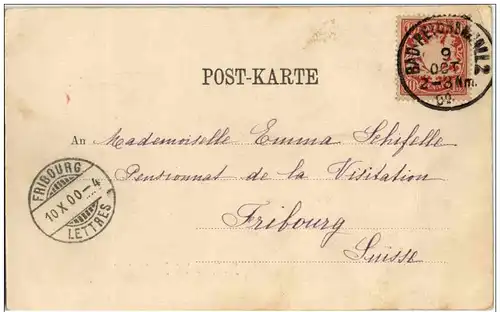 POST-KARTE
BAD REICHENHALL 2
9
OCT
2-3 Nm.
00
An Mademoiselle Emma Schifelle
Pensionnat de la Visitation
Fribourg
Suisse
FRIBOURG
10 X 00-4
LETTRES